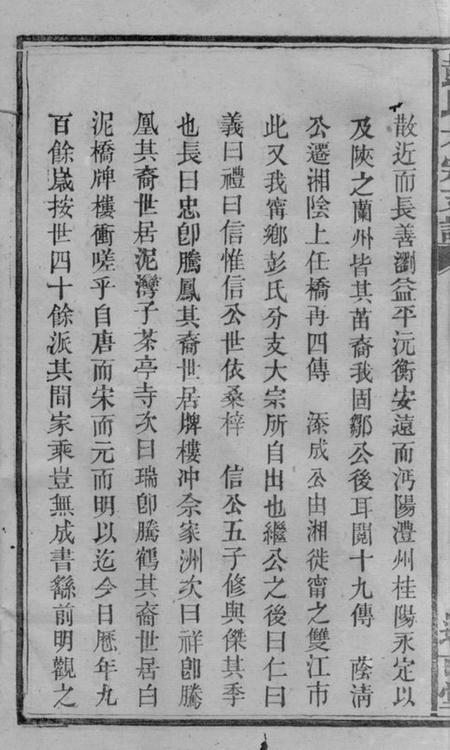 散近而長善瀏益平沅衡安遠而沔陽澧州桂陽永定以
及陝之蘭州皆其苗裔我固鄒公後耳閱十九傳　蔭清
公遷湘陰上任橋再四傳　添成公由湘徙甯之雙江市
此又我甯鄉彭氏分支大宗所自出也繼公之後曰仁曰
義曰禮曰信惟信公世依桑梓　信公五子修與傑其季
也長曰忠卽騰鳳其裔世居牌樓冲佘家洲次曰祥卽騰
凰其裔世居泥灣子茶亭寺次曰瑞卽騰鶴其裔世居白
泥橋牌樓衝嗟乎自唐而宋而元而明以迄今日歷年九
百餘嵗按世四十餘派其間家乘豈無成書繇前明觀之